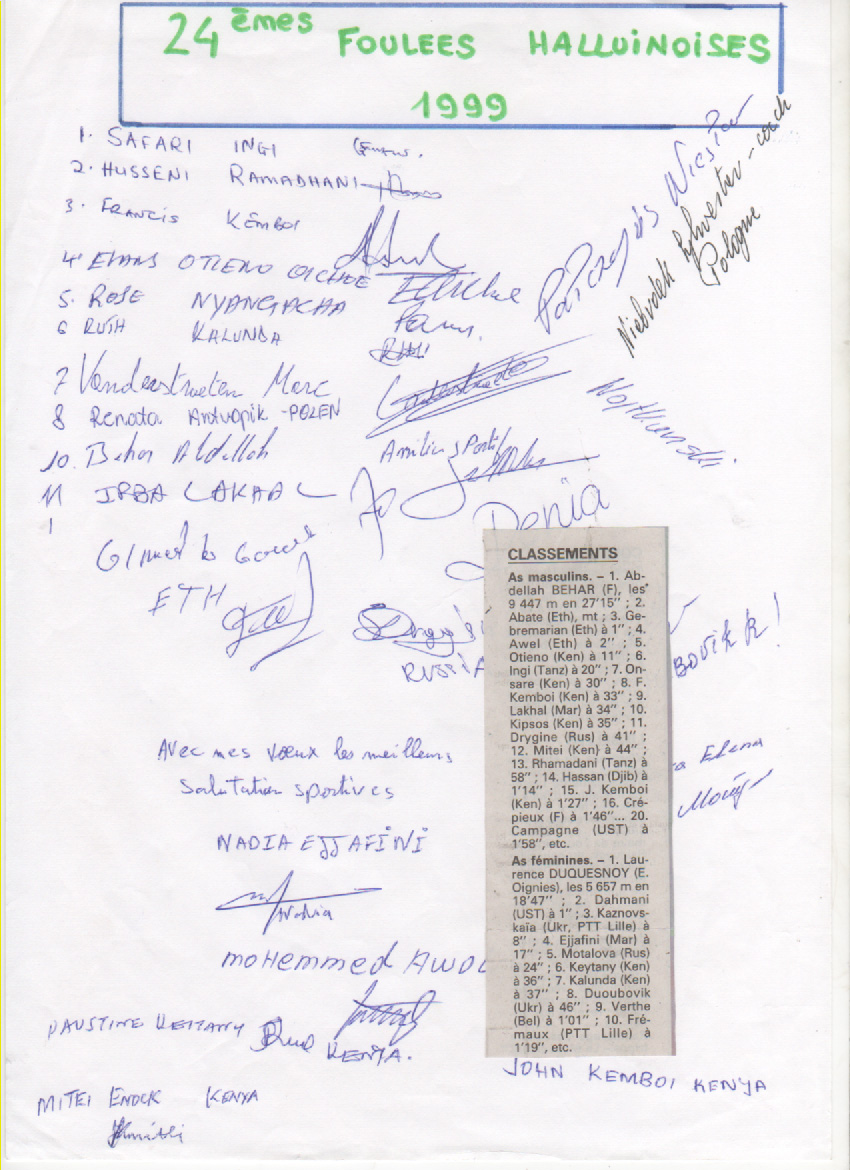 24 èmes FOULEES HALLUINOISES
1999
1. SAFARI INGI
2. HUSSENI RAMADHANI
3. FRANCIS KEMBOI
4. EVANS OTIENO
5. ROSE NYANGACHA
6 RUTH KALUNDA
7 Vanderstraeten Marc
8 Renata -POLEN
10. Behar Abdellah
Amitiés Sportif
11 LAKAAL
1
Denia
ETH
RUSSIA
BOVIKK!
Wiesław
Sylwester - coach
Pologne
Elena
Avec mes vœux les meilleurs
Salutation sportives
NADIA EJJAFiNi
Nadia
moHemmed AWOL
PAUSTINE KEITANY
KENYA.
MITEI ENOCK KENYA
JOHN KEMBOI KENYA
CLASSEMENTS
As masculins. – 1. Ab-
dellah BEHAR (F), les
9 447 m en 27'15" ; 2.
Abate (Eth), mt ; 3. Ge-
bremarian (Eth) à 1" ; 4.
Awel (Eth) à 2" ; 5.
Otieno (Ken) à 11" ; 6.
Ingi (Tanz) à 20" ; 7. On-
sare (Ken) à 30" ; 8. F.
Kemboi (Ken) à 33" ; 9.
Lakhal (Mar) à 34" ; 10.
Kipsos (Ken) à 35" ; 11.
Drygine (Rus) à 41" ;
12. Mitei (Ken) à 44" ;
13. Rhamadani (Tanz) à
58" ; 14. Hassan (Djib) à
1'14" ; 15. J. Kemboi
(Ken) à 1'27" ; 16. Cré-
pieux (F) à 1'46"... 20.
Campagne (UST) à
1'58", etc.
As féminines. – 1. Lau-
rence DUQUESNOY (E.
Oignies), les 5 657 m en
18'47" ; 2. Dahmani
(UST) à 1" ; 3. Kaznovs-
kaïa (Ukr, PTT Lille) à
8" ; 4. Ejjafini (Mar) à
17" ; 5. Motalova (Rus)
à 24" ; 6. Keytany (Ken)
à 36" ; 7. Kalunda (Ken)
à 37" ; 8. Duoubovik
(Ukr) à 46" ; 9. Verthe
(Bel) à 1'01" ; 10. Fré-
maux (PTT Lille) à
1'19", etc.